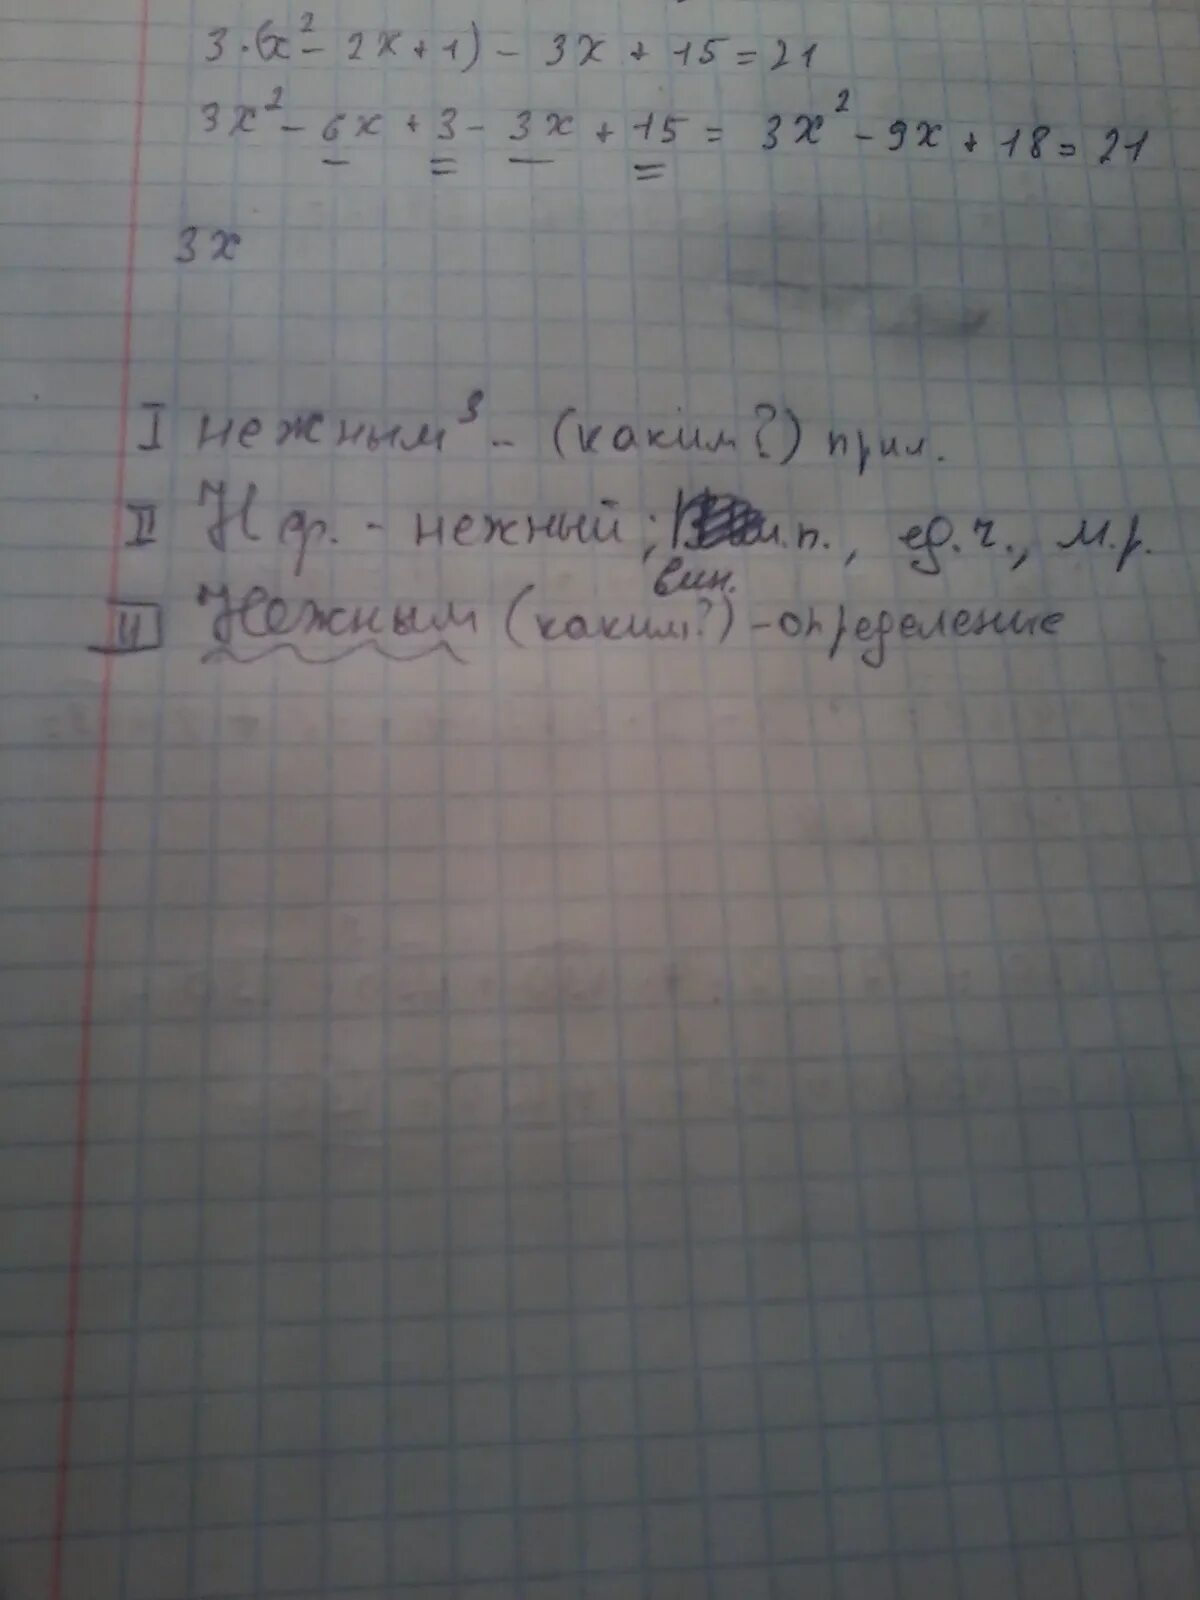 3·(x²- 2x+1) - 3x + 15 = 21
3x² - 6x + 3 - 3x + 15 = 3x² - 9x + 18 = 21
3x
I нежным³ - (каким?) прил.
II Н ф. - нежный; п., ед.ч., м.р.
вин.
Нежным (каким?) - определение